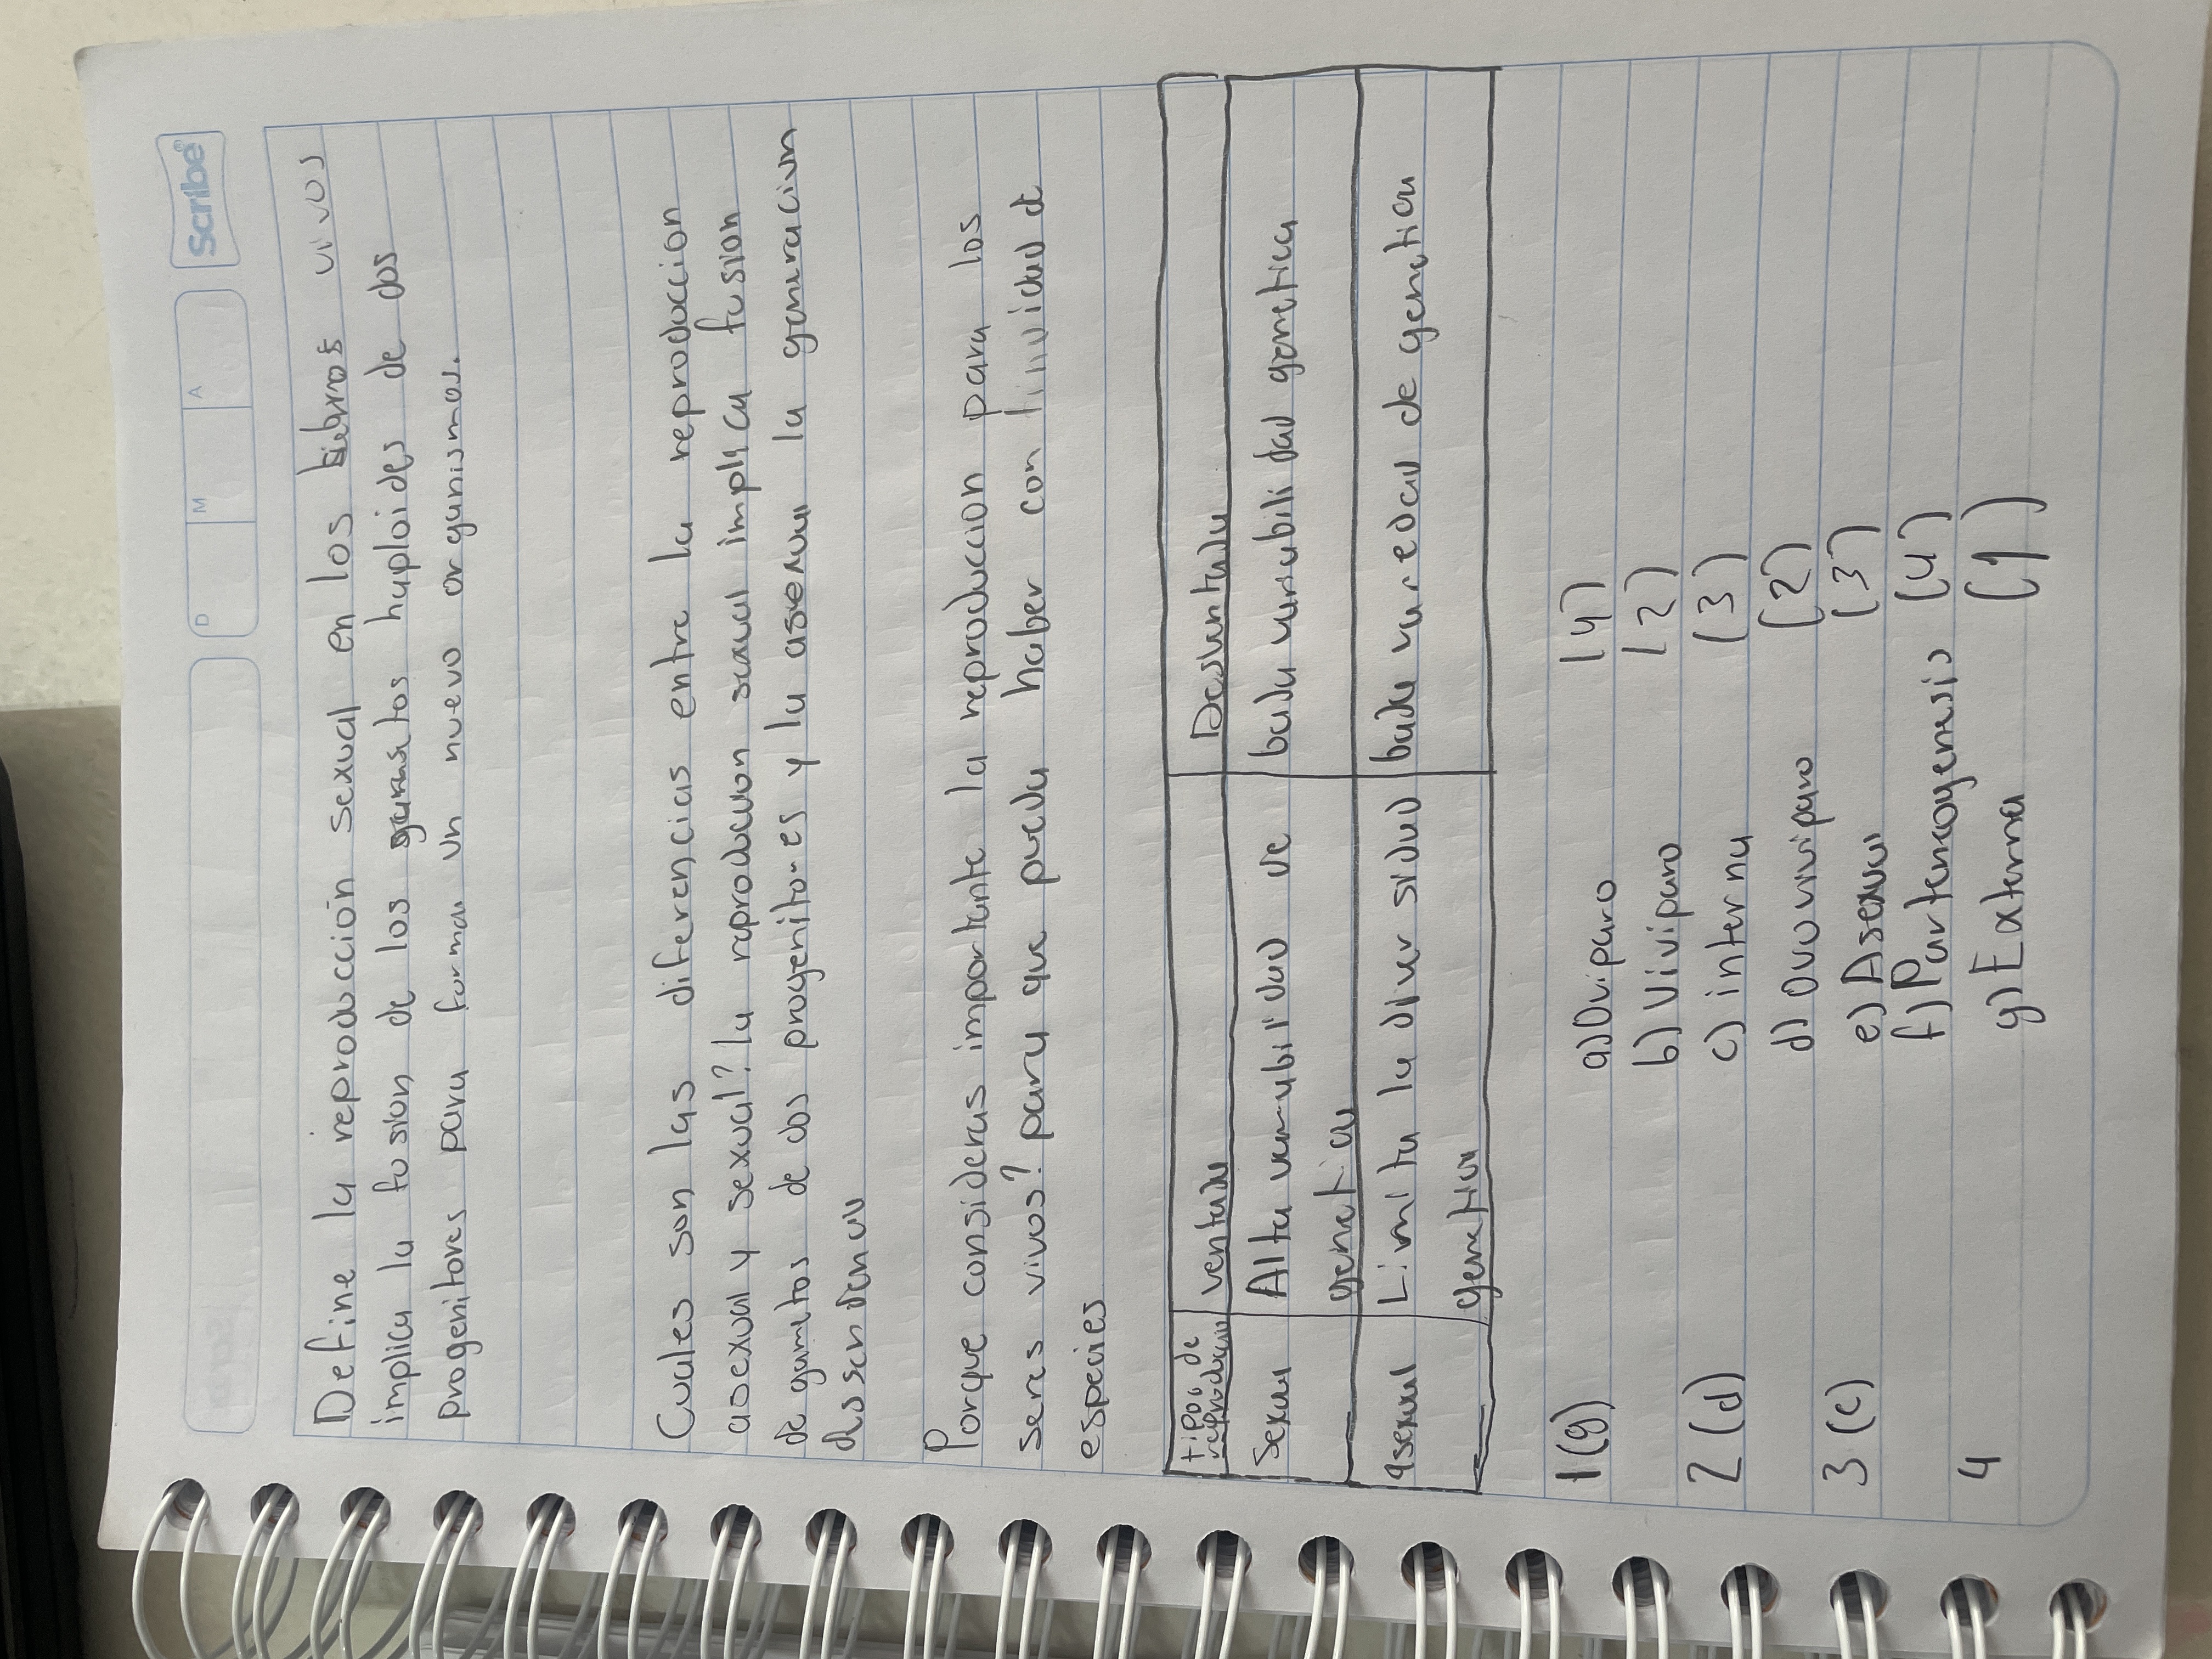 Scribe
D M A
Define la reproducción sexual en los seres vivos
implica la fusion de los gametos haploides de dos
progenitores para formar un nuevo organismos.
Cuales son las diferencias entre la reproduccion
asexual y sexual? la reproduccion sexual implica fusion
de gametos de dos progenitores y la asexual la generacion
Porque consideras importante la reproduccion para los
seres vivos? para que pueda haber continuidad de
especies
tipos de reproduccion ventaja Desventaja
sexual Alta variabilidad de genetica baja variabilidad genetica
asexual Limita la diversidad genetica baja variedad de genetica
1(g) a) Oviparo (4)
b) Viviparo (2)
2 (d) c) interna (3)
d) Ovoviviparo (2)
3 (c) e) Asexual (3)
f) Partenogenesis (4)
4 g) Externa (1)